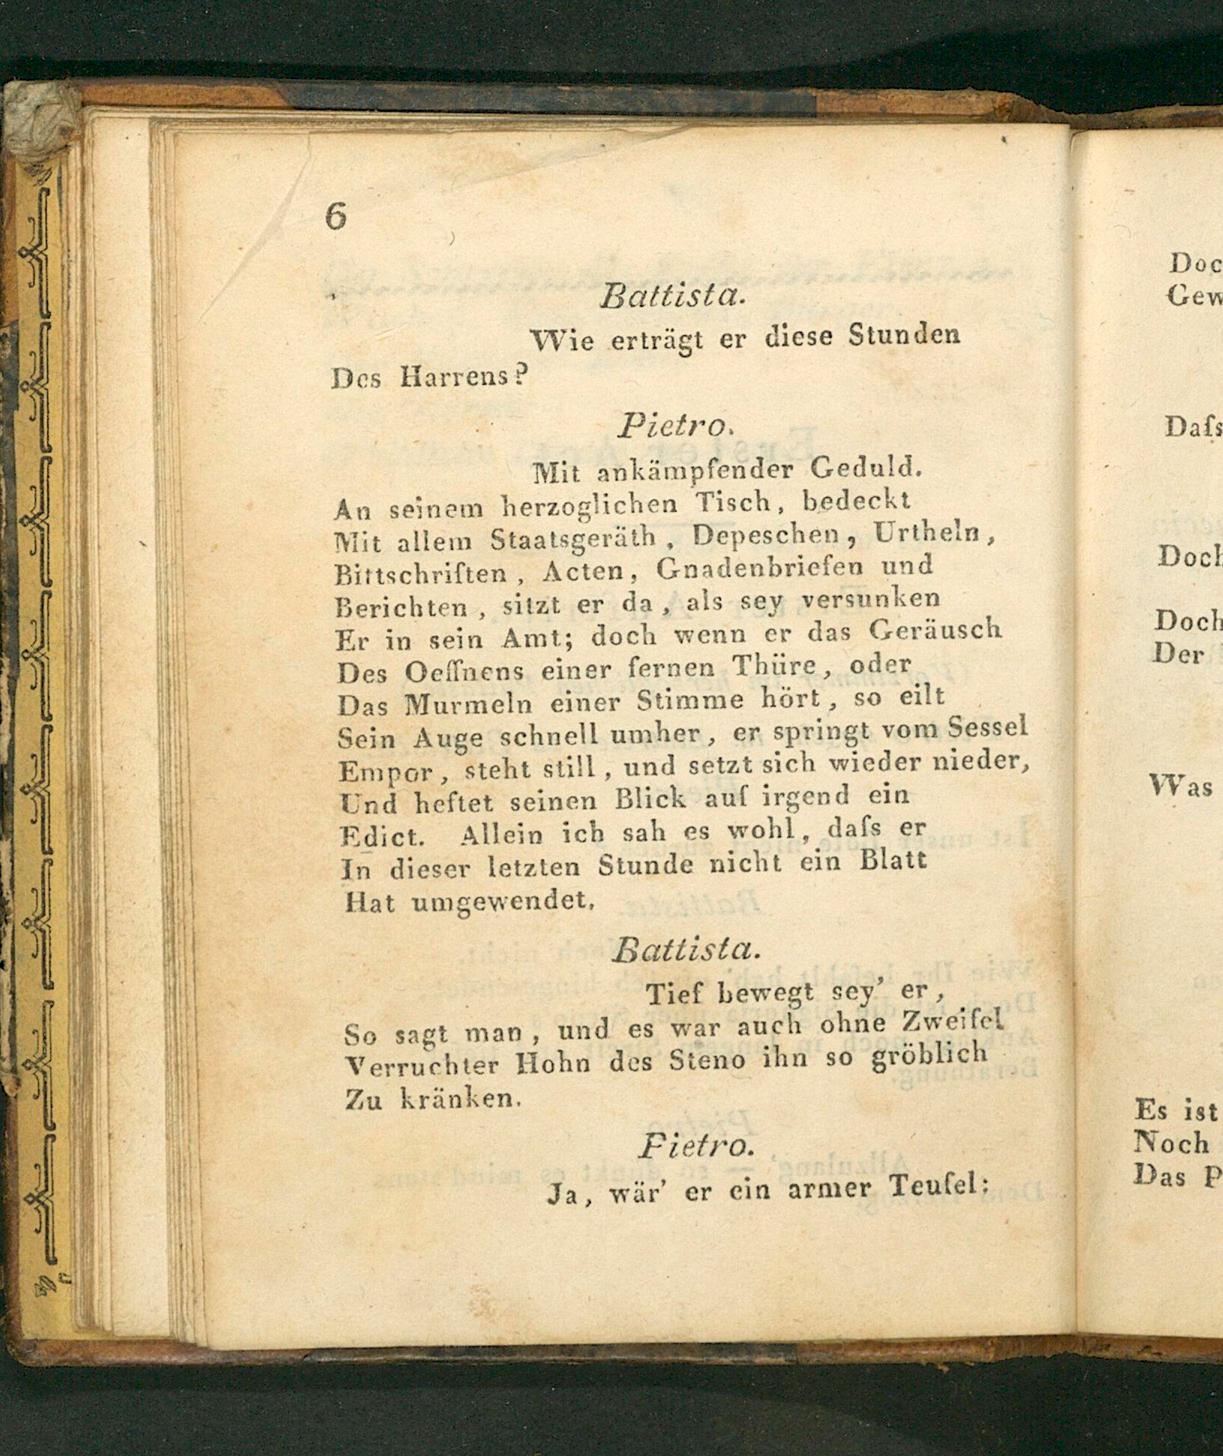 6
Battista.
Wie erträgt er diese Stunden
Des Harrens?
Pietro.
Mit ankämpfender Geduld.
An seinem herzoglichen Tisch, bedeckt
Mit allem Staatsgeräth, Depeschen, Urtheln,
Bittschriften, Acten, Gnadenbriefen und
Berichten, sitzt er da, als sey versunken
Er in sein Amt; doch wenn er das Geräusch
Des Oeffnens einer fernen Thüre, oder
Das Murmeln einer Stimme hört, so eilt
Sein Auge schnell umher, er springt vom Sessel
Empor, steht still, und setzt sich wieder nieder,
Und heftet seinen Blick auf irgend ein
Edict. Allein ich sah es wohl, daſs er
In dieser letzten Stunde nicht ein Blatt
Hat umgewendet.
Battista.
Tief bewegt sey' er,
So sagt man, und es war auch ohne Zweifel
Verruchter Hohn des Steno ihn so gröblich
Zu kränken.
Pietro.
Ja, wär' er ein armer Teufel;
Doc
Gew
Daſs
Doch
Doch
Der
Was
Es ist
Noch
Das P